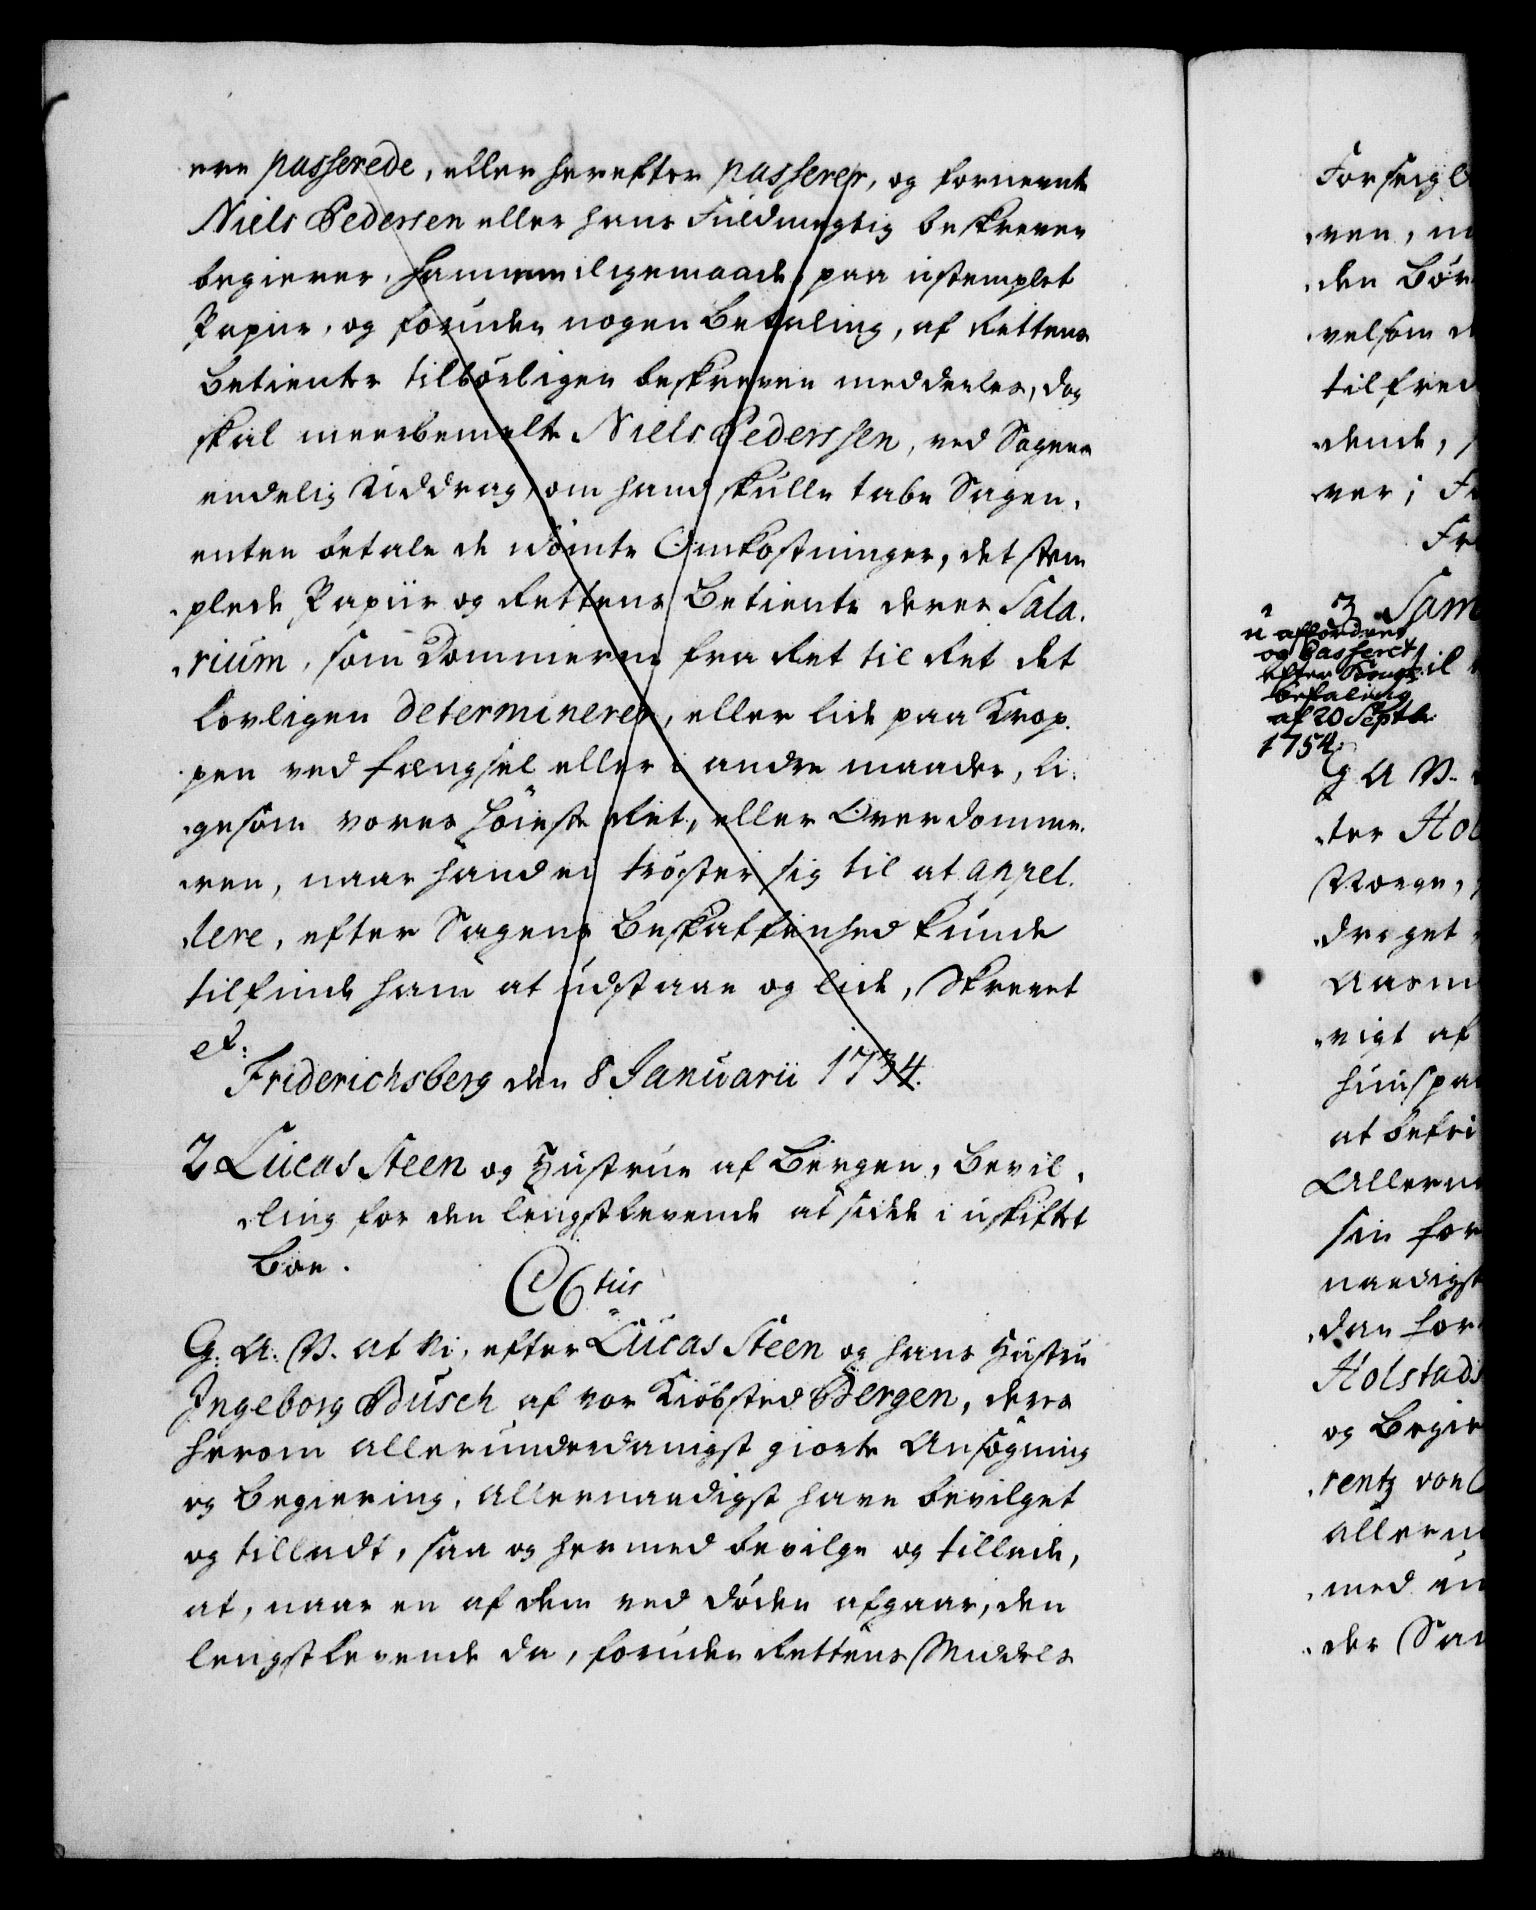 ere passerede, eller herefter passerer, og fornevnte
Niels Pedersen eller hans Fuldmegtig beskreven
begierer, hannem i ligemaade, paa ustemplet
Papiir, og foruden nogen Betaling, af Rettens
Betiente tilbørligen beskreven meddeeles, dog
skal meerbemelte Niels Pederssen, ved Sagens
endelig Uddrag, om hand skulle tabe Sagen,
enten betale de idømte Omkostninger, det stem
plede Papiir og Rettens Betiente deres Sala,
rium, som Dommerne fra Ret til Ret det
lovligen determinerer, eller lide paa Krop,
pen ved fængsel eller i andre maader, li,
gesom vores Høieste Ret, eller Overdomme,
ren, naar hand ei trøster sig til at appel,
lere, efter Sagens Beskaffenhed kunde
tilfinde ham at udstaae og lide, Skrevet
etc:
Friderichsberg den 8 Januarii 1734.
2 Lucas Steen og Hustrue af Bergen, Bevil,
ling for den lengstlevende at sidde i uskiftet
Boe.
C 6tus
G: A: V. at Vi, efter Lucas Steen og hans Hustru
Ingeborg Busch af vor Kiøbsted Bergen, deres
herom allerunderdanigst giorte Ansøgning
og Begiering, allernaadigst have bevilget
og tilladt, saa og hermed bevilge og tillade,
at, naar en af dem ved døden afgaar, den
lengstlevende da, foruden Rettens Middels
Forseigl
ven, m
den Bør
velsom d
tilfred
dende,
ver i Fr
Fr
3 Sam
u affordret
og Casseret
efter Kongl.
befaling
af 20 Septbr
1754
til
G A V.
ter Hol
Norge,
draget
Aasm
vigt af
huuspa
at befri
Allern
sin for
naadigst
dan for
Holstads
og Begier
rentz von
allern
med un
der Sam